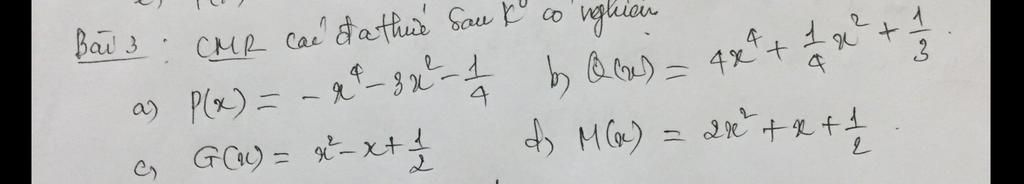 Bài 3 : CMR các đa thức sau k⁰ có nghiệm
a) P(x) = - x⁴ - 3x² - 1/4 b) Q(x) = 4x⁴ + 1/4 x² + 1/3 .
c) G(x) = x² - x + 1/2 d) M(x) = 2x² + x + 1/2 .